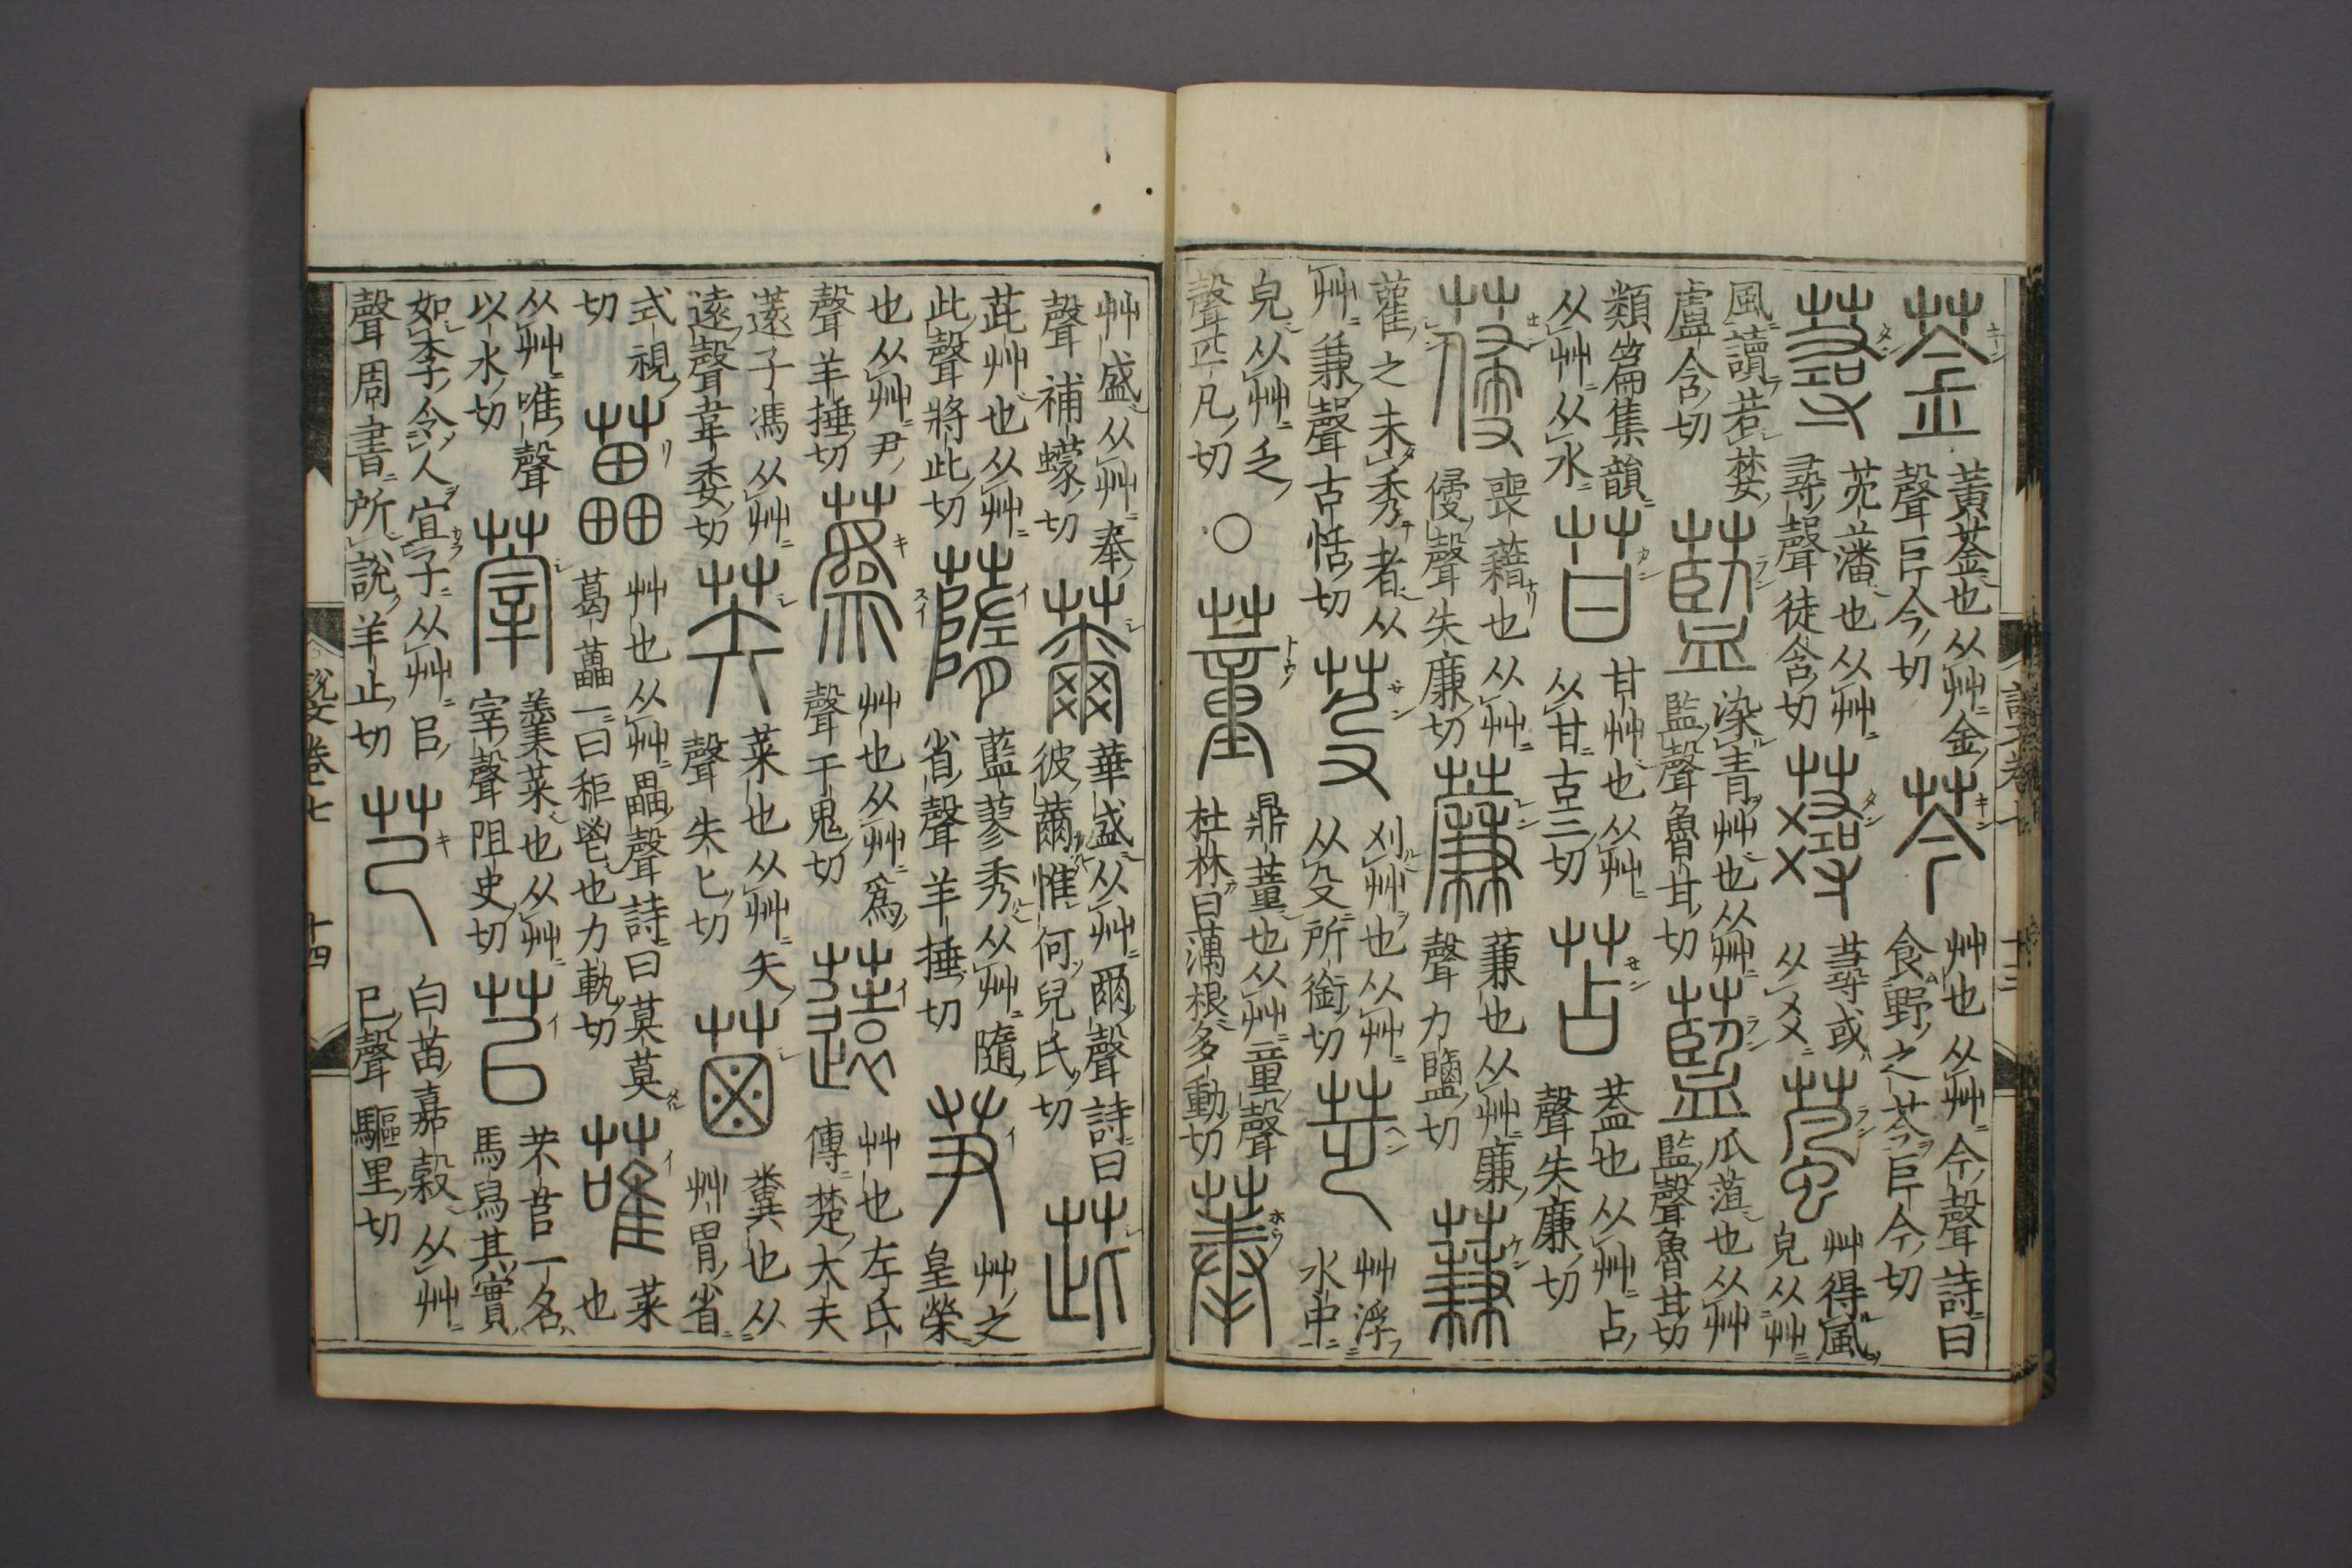 菳黃菳也从艸金聲巨今切芩艸也从艸今聲詩曰食野之芩巨今切
蕁芜潘也从艸尋聲徒含切𧂇蕁或从爻葻艸得風皃从艸
風讀若婪盧含切藍染青艸也从艸監聲魯甘切藍瓜菹也从艸監聲魯甘切
類篇集韻从艸从水苷甘艸也从艸从甘古三切苫葢也从艸占聲失廉切
葠喪藉也从艸侵聲失廉切薕蒹也从艸廉聲力鹽切蒹
雚之未秀者从艸兼聲古恬切芟刈艸也从艸从殳所銜切芝艸浮水中
皃从艸乏聲匹凡切○董鼎董也从艸童聲杜林曰藕根多動切菶
說文卷七 十三
艸盛从艸奉聲補蠓切薾華盛从艸爾聲詩曰彼薾惟何兒氏切茈
茈艸也从艸此聲將此切䕝藍蓼秀从艸隨省聲羊捶切芛艸之皇榮
也从艸尹聲羊捶切蒍艸也从艸爲聲于鬼切薳艸也左氏傳楚大夫
薳子馮从艸遠聲韋委切菜也从艸矢聲失匕切糞也从艸胃省
式視切藟艸也从艸畾聲詩曰莫莫葛藟一曰秬鬯也力軌切蓶菜也
从艸唯聲以水切䔂羹菜也从艸宰聲阻史切苢芣苢一名馬舄其實
如李令人宜子从艸㠯聲周書所說羊止切芑白苗嘉穀从艸己聲驅里切
說文卷七 十四